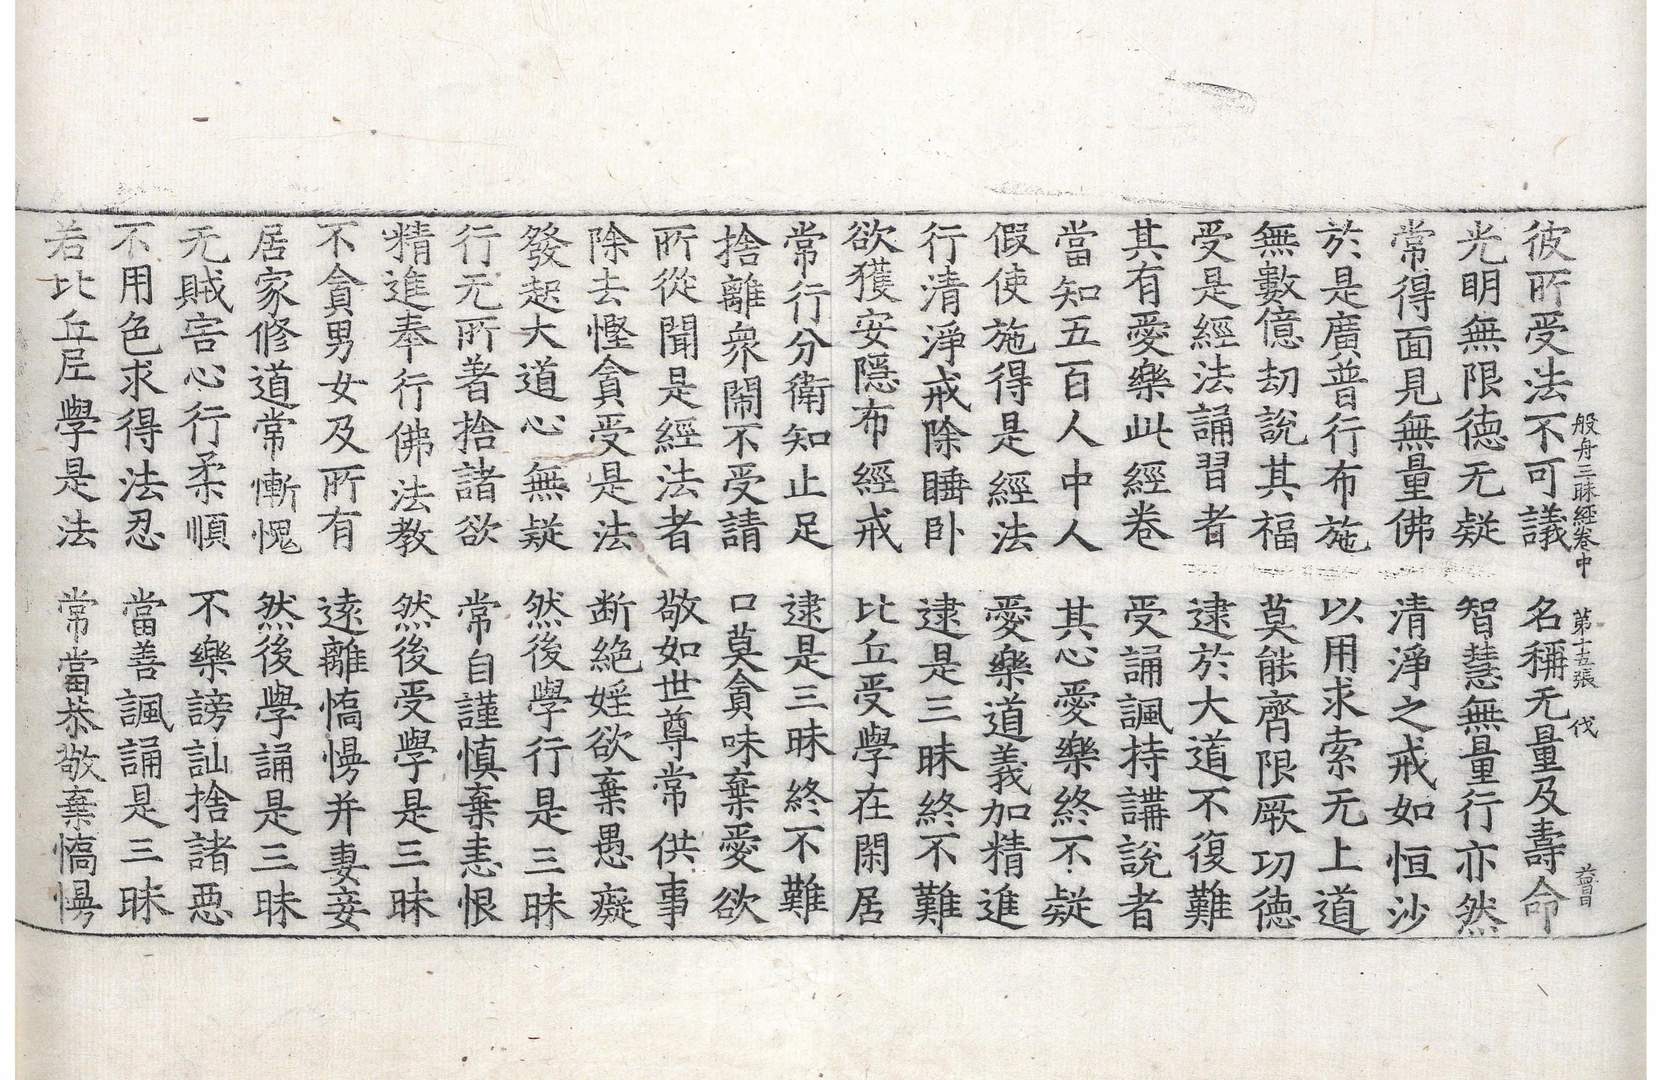 般舟三昧經卷中　第十五張　伐
彼所受法不可議　名稱无量及壽命
光明無限德无疑　智慧無量行亦然
常得面見無量佛　清淨之戒如恒沙
於是廣普行布施　以用求索无上道
無數億劫說其福　莫能齊限厥功德
受是經法誦習者　逮於大道不復難
其有愛樂此經卷　受誦諷持講說者
當知五百人中人　其心愛樂終不疑
假使施得是經法　愛樂道義加精進
行清淨戒除睡卧　逮是三昧終不難
欲獲安隱布經戒　比丘受學在閑居
常行分衛知止足　逮是三昧終不難
捨離衆鬧不受請　口莫貪味棄愛欲
所從聞是經法者　敬如世尊常供事
除去慳貪受是法　断絶婬欲棄愚癡
發起大道心無疑　然後學行是三昧
行无所著捨諸欲　常自謹慎棄恚恨
精進奉行佛法教　然後受學是三昧
不貪男女及所有　遠離憍慢并妻妾
居家修道常慚愧　然後學誦是三昧
无賊害心行柔順　不樂謗訕捨諸惡
不用色求得法忍　當善諷誦是三昧
若比丘尼學是法　常當恭敬棄憍慢